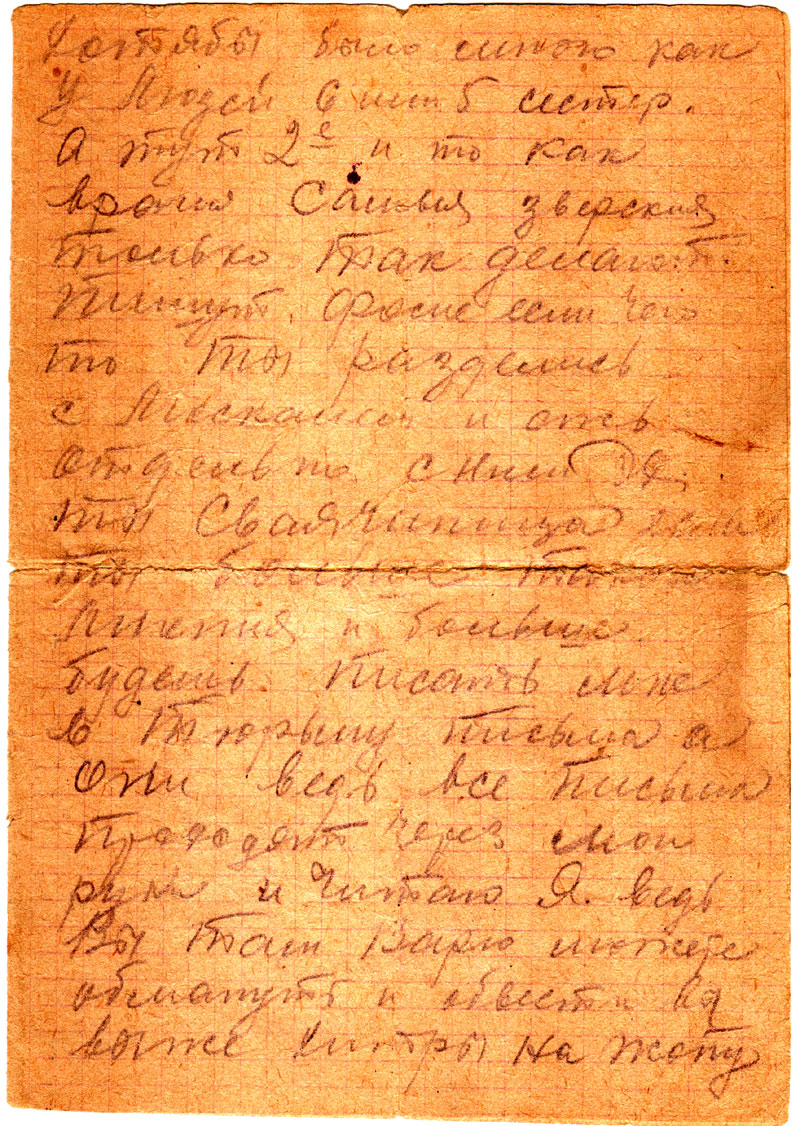 Хотябы было много как
у Людей 6 или 5 сестер.
А тут 2е и то как
враги Самыя зверския
только так делают.
Пишут, Фосе если чего
то ты разделись
с Лысканом и
отдельно с ним
ты Свая
ты больше
мнения и больше
будешь писать мне
в Тюрьму письма а
они ведь все письма
проходят через мои
руки и читаю Я. ведь
Вы там Варю можете
обмануть и обвести ведь
вы же хитры на жопу